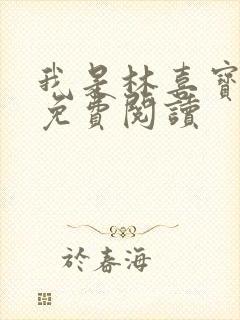 我是林喜寶
免費閱讀
於春海